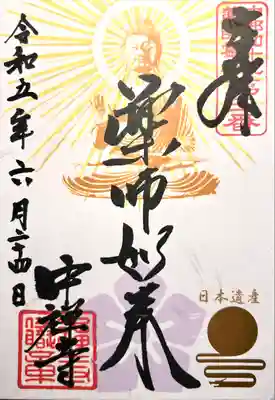 奉拝
薬師如来
中禅寺
令和五年六月二十四日
日本遺産